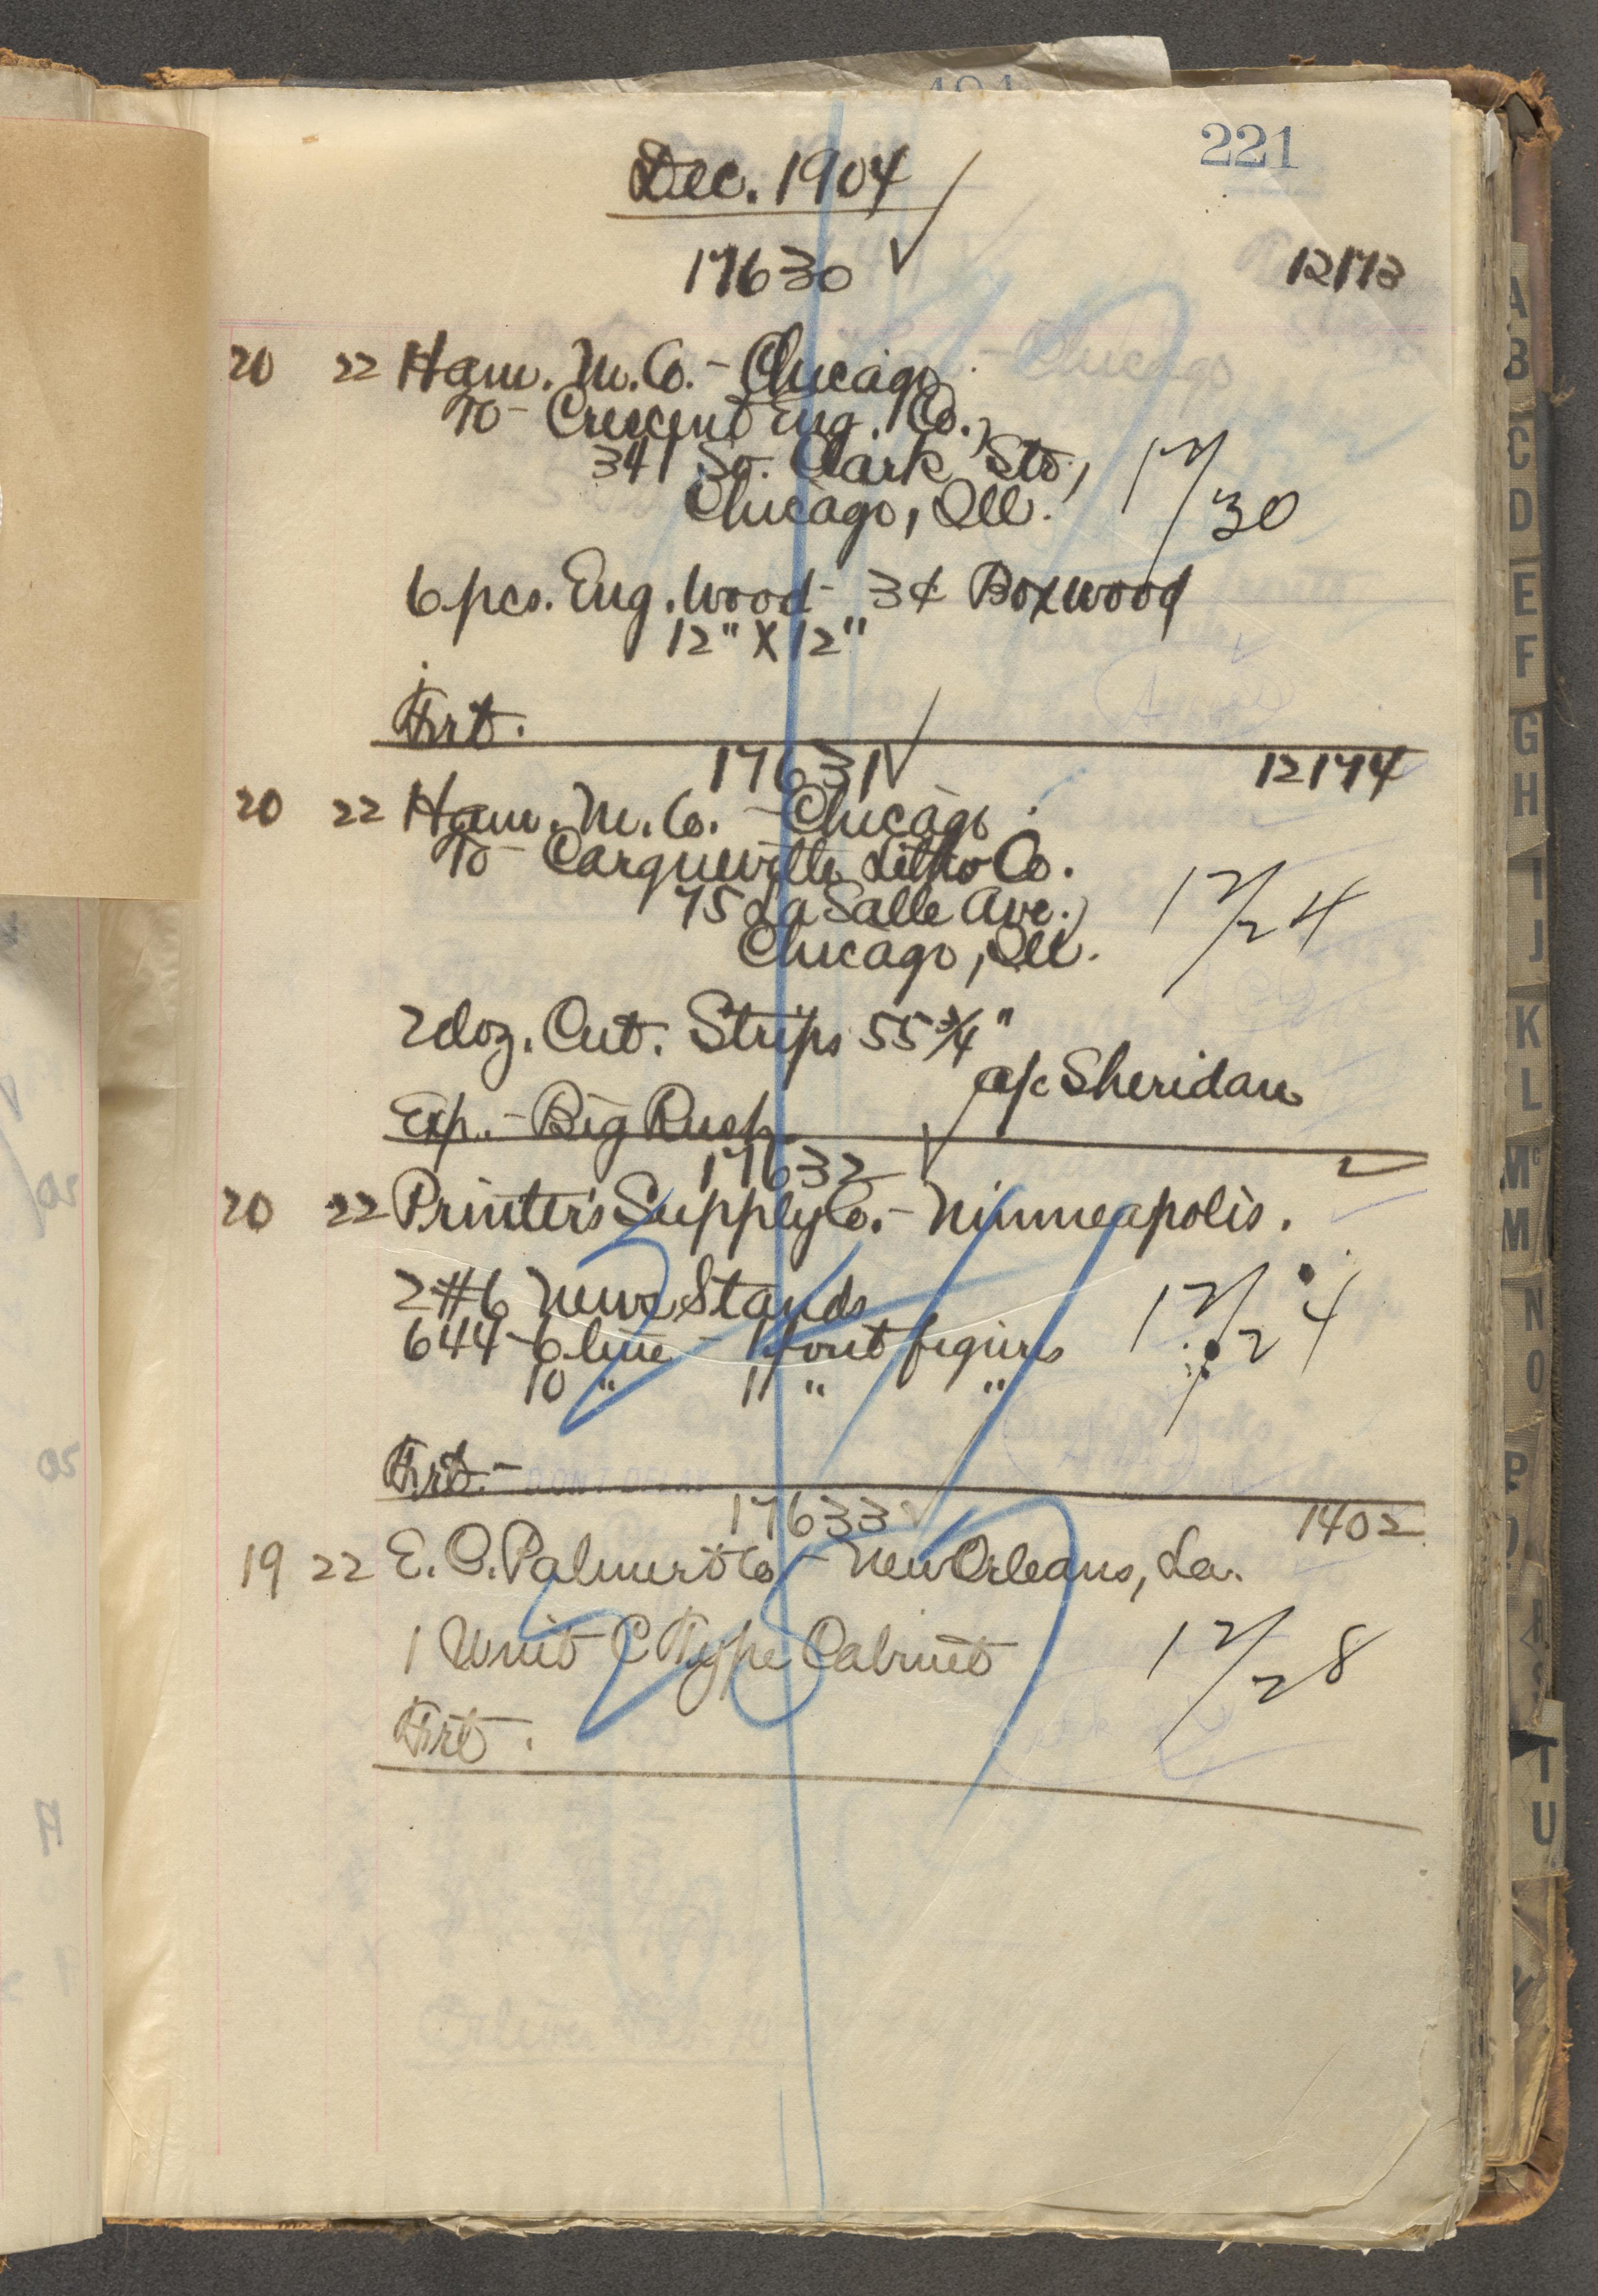 221
Dec. 1904
17630 ✓ 12173
20 22 Ham. M. Co. - Chicago
To - Crescent Eng. Co.,
341 So. Clark St.,
Chicago, Ill.
12/30
6 pcs. Eng. Wood - 3¢ Boxwood
12" X 12"
Frt.
17631 ✓ 12174
20 22 Ham. M. Co. - Chicago
To - Carqueville Litho Co.
75 La Salle Ave.,
Chicago, Ill.
12/24
2 doz. Cut. Strips 55 3/4"
a/c Sheridan
Exp. - Big Rush
17632 ✓
20 22 Printer's Supply Co. - Minneapolis.
2 #6 News Stands
644 - 6 line - 1 font figures
10 " 1 " "
12/24
Frt. -
17633 ✓ 1402
19 22 E. C. Palmer & Co - New Orleans, La.
1 Unit C Type Cabinet
12/28
Frt.
A
B
C
D
E
F
G
H
I
J
K
L
Mc
M
N
O
P
T
U